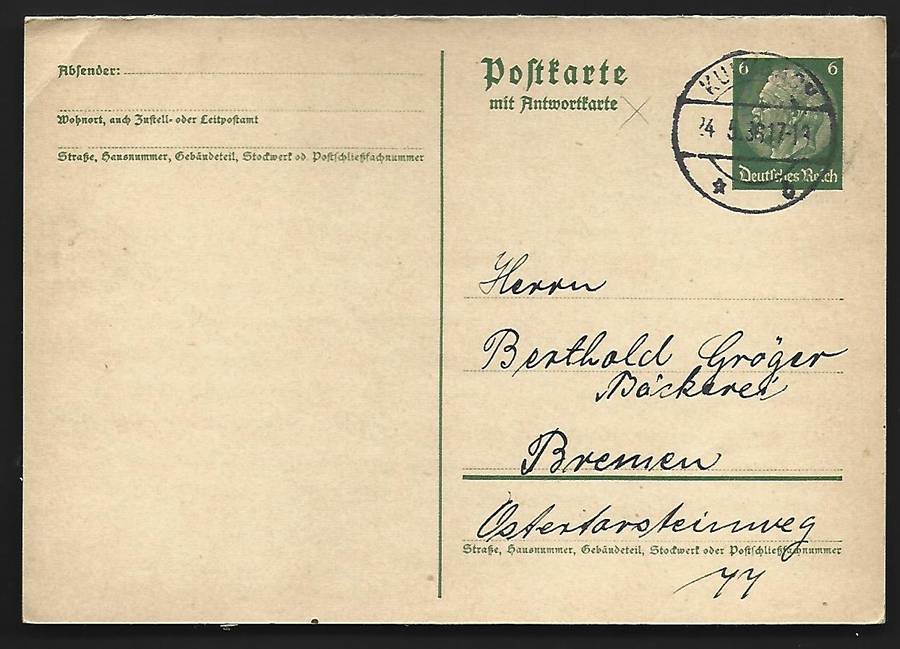 Absender:
Wohnort, auch Zustell- oder Leitpostamt
Straße, Hausnummer, Gebäudeteil, Stockwerk od. Postschließfachnummer
Postkarte
mit Antwortkarte
6 6
Deutsches Reich
17-1
Herrn
Berthold Gröger
Bäckerei
Bremen
Ostertorsteinweg
Straße, Hausnummer, Gebäudeteil, Stockwerk oder Postschließfachnummer
77